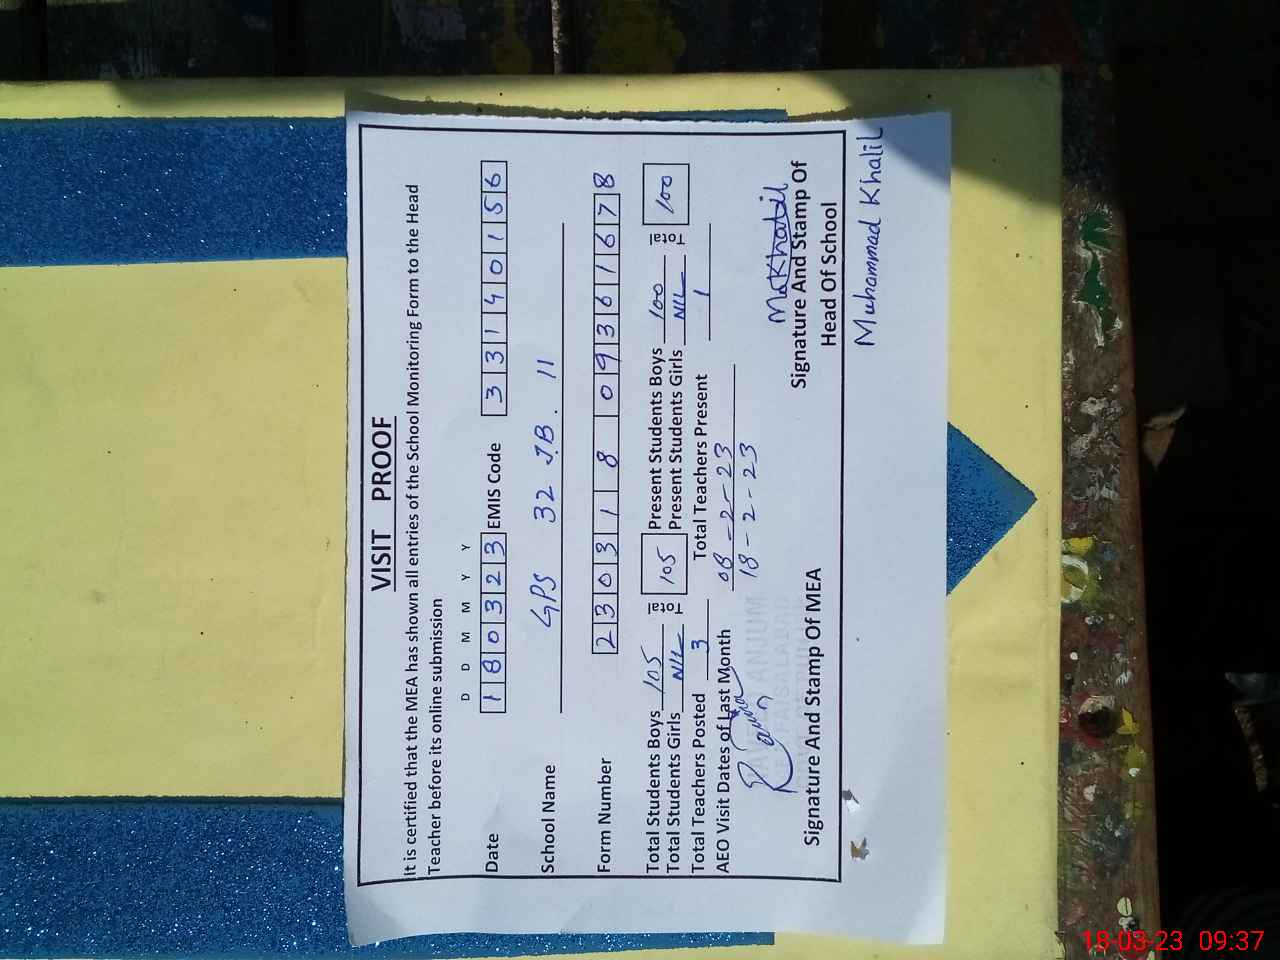 VISIT PROOF
It is certified that the MEA has shown all entries of the School Monitoring Form to the Head
Teacher before its online submission
D D M M Y Y
Date 180323 EMIS Code 33140156
School Name GPS 32 J.B. 11
Form Number 2303180936 1678
Total Students Boys 105 Total 105 Present Students Boys 100 Total 100
Total Students Girls NIL Present Students Girls NIL
Total Teachers Posted 3 Total Teachers Present 1
AEO Visit Dates of Last Month 08-2-23
18-2-23
ANJUM
FAISALABAD
M.Khalil
Signature And Stamp Of MEA Signature And Stamp Of
Head Of School
Muhammad Khalil
18-03-23 09:37